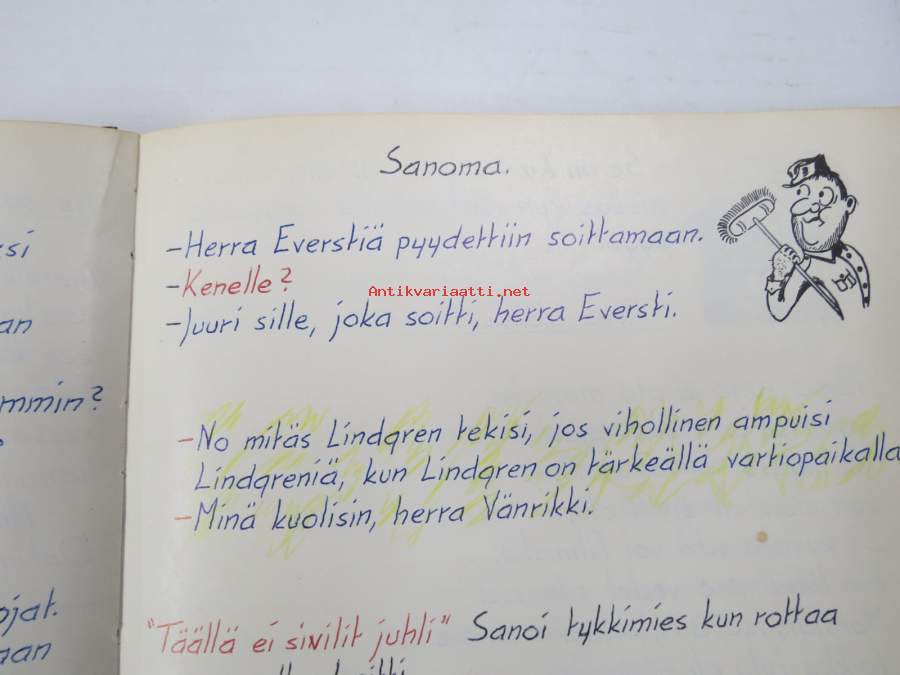 Sanoma.
-Herra Everstiä pyydettiin soittamaan.
-Kenelle?
Antikvariaatti.net
-Juuri sille, joka soitti, herra Eversti.
-No mitäs Lindgren tekisi, jos vihollinen ampuisi
Lindgreniä, kun Lindgren on tärkeällä vartiopaikalla
-Minä kuolisin, herra Vänrikki.
"Täällä ei siviilit juhli" Sanoi tykkimies kun rottaa